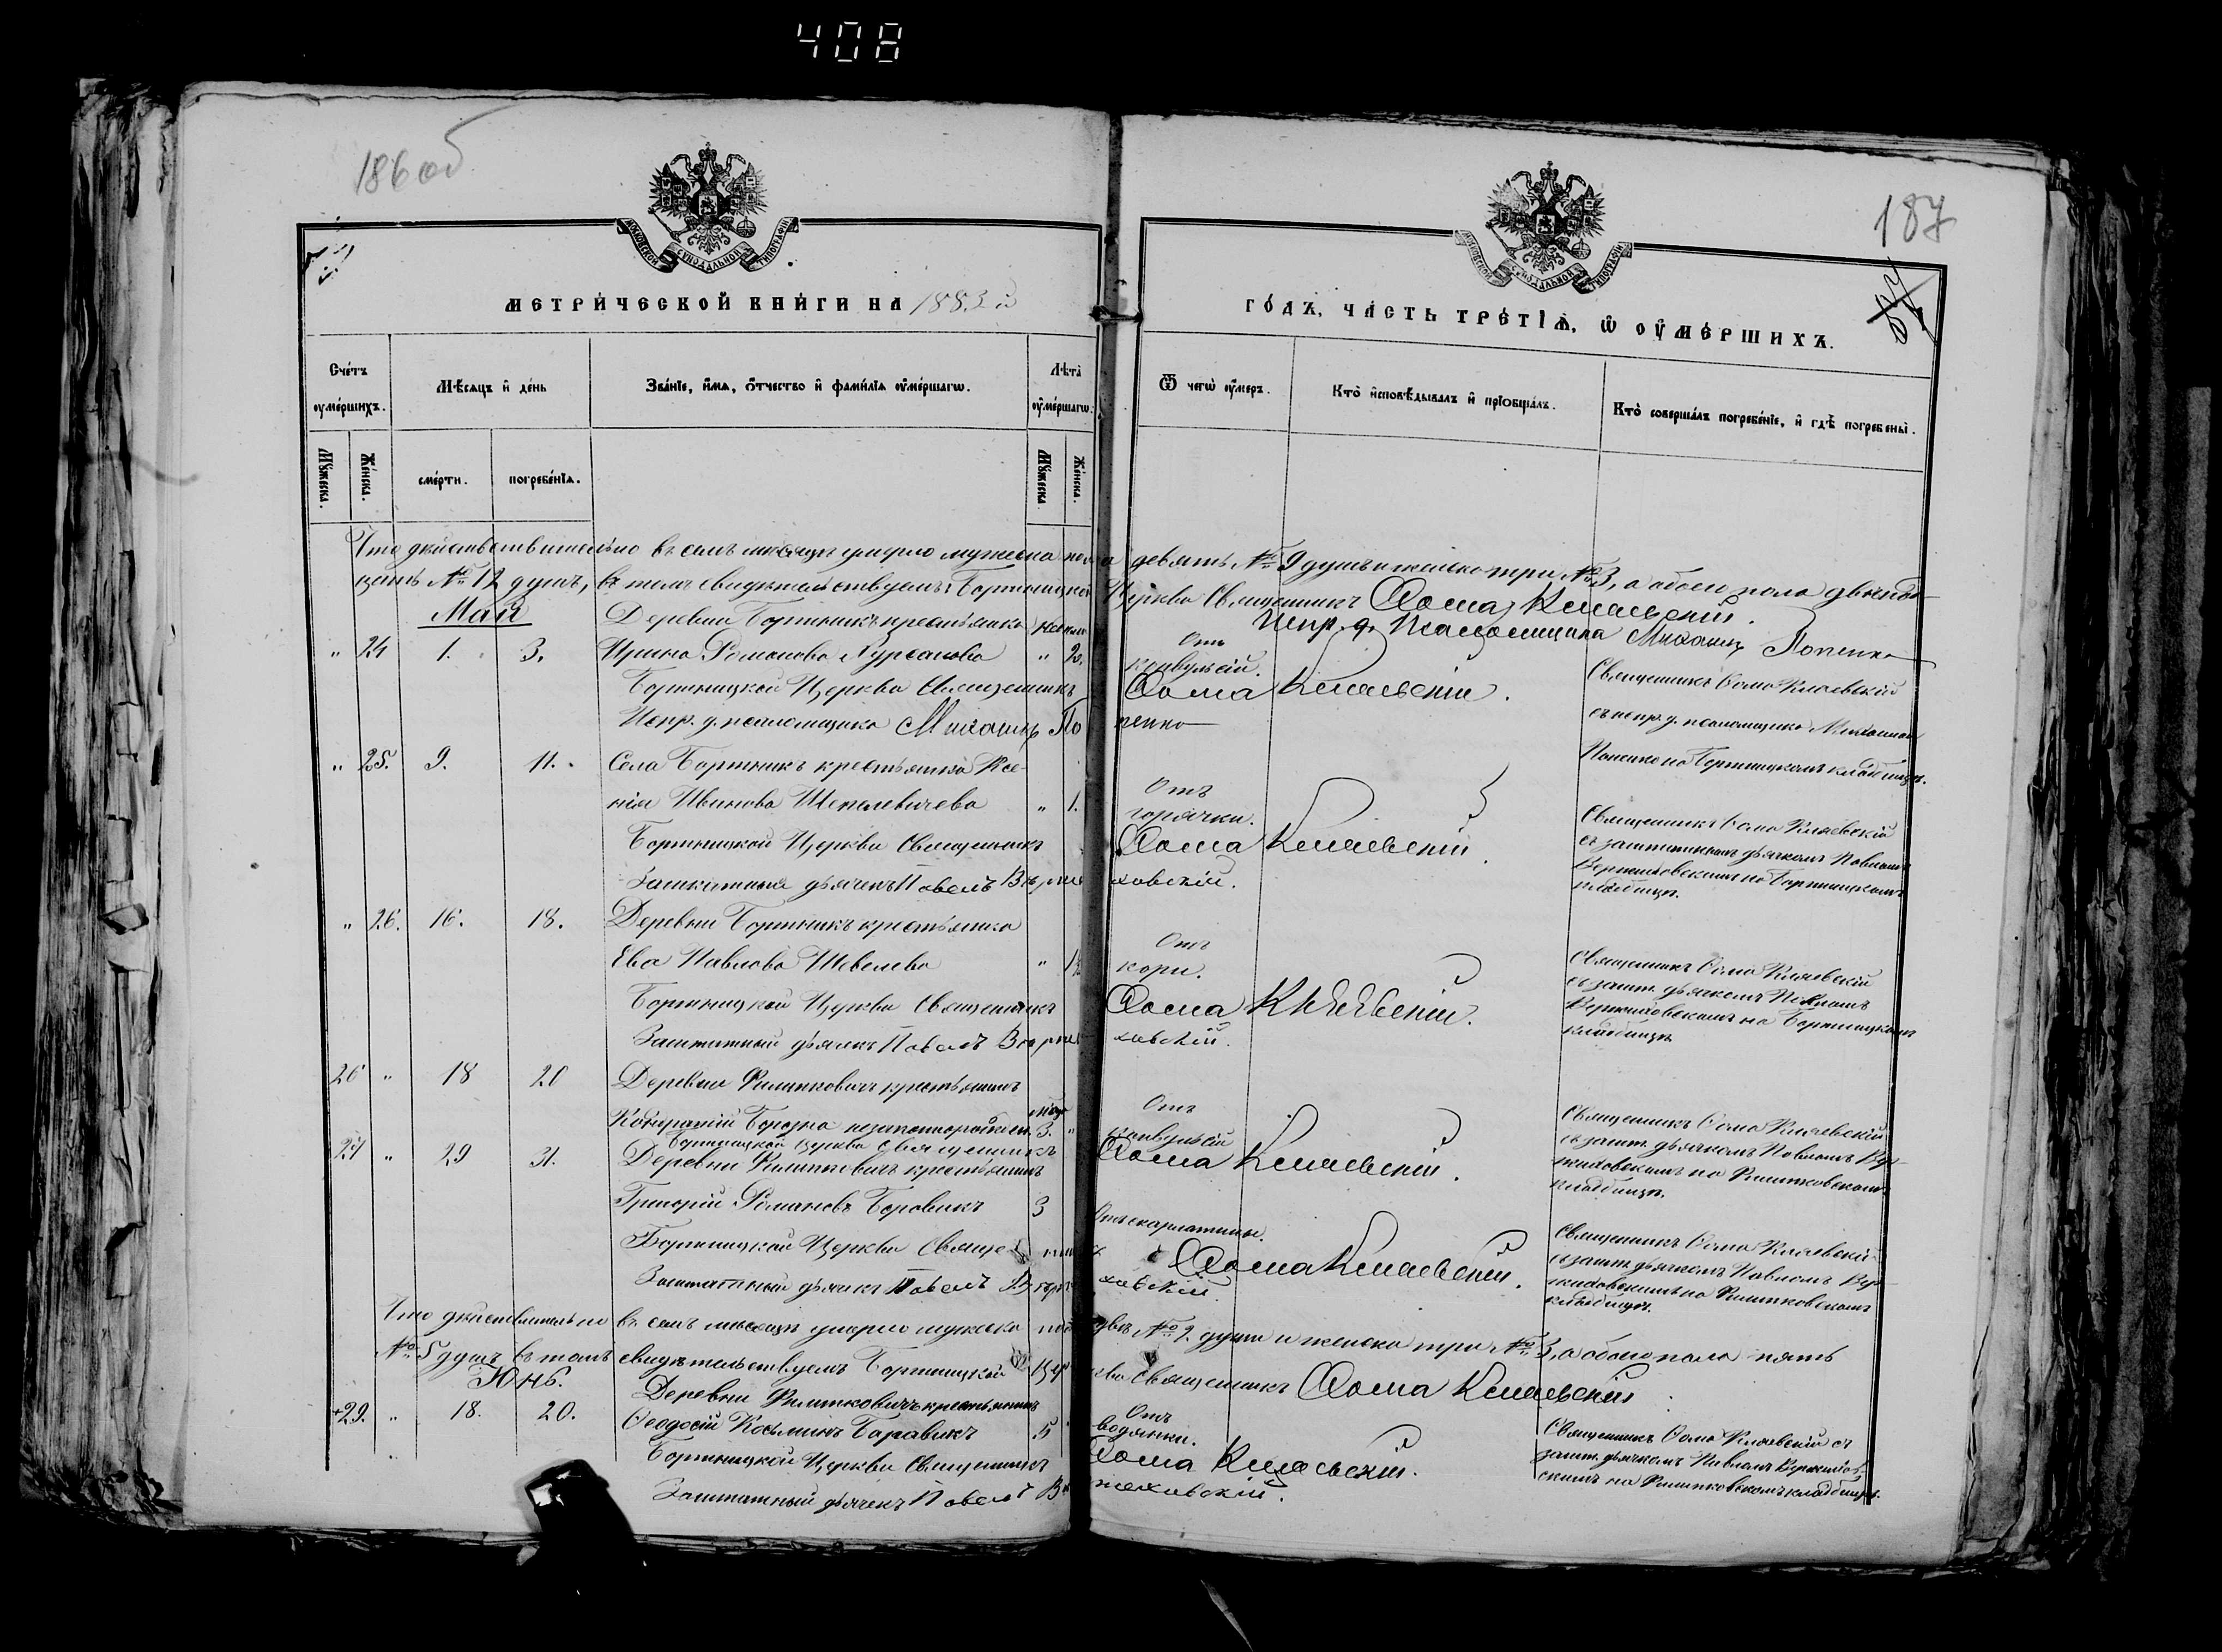 408
186 об
187
МОСКОВСКОЙ СѴНОДАЛЬНОЙ ТИПОГРАФІИ
МОСКОВСКОЙ СѴНОДАЛЬНОЙ ТИПОГРАФІИ
МЕТРИ́ЧЕСКОЙ КНИ́ГИ НА 1883 й
ГО́ДЪ, ЧА́СТЬ ТРЕ́ТІѦ, Ѡ ОУ҆МЕ́РШИХЪ.
Сче́тъ оумéршихъ.
Мѣ́сяцъ и҆ де́нь
Зва́нїе, и҆́мя, ѻ҆́тчество и҆ фами́лїя оу҆ме́ршагѡ.
Лѣта̀ оу҆ме́ршагѡ.
Ѿ чегѡ̀ оу҆́меръ.
Кто̀ и҆сповѣ́дывалъ и҆ прїѻбща́лъ.
Кто̀ соверша́лъ погребе́нїе, и҆ гдѣ̀ погребены̀.
Мꙋ́жеска.
Же́нска.
сме́рти.
погребе́нїя.
Мꙋ́жеска.
Же́нска.
Что действительно въ семъ мѣсяцѣ умерло мужеска пола девять № 9 душъ и женска три № 3, а обоего пола двѣнад-
цать № 12 душъ, въ томъ свидѣтельствуемъ: Бортницкой Церкви Священникъ Ѳома Кляевскій.
Испр. д. Псаломщика Михаилъ Попенко
Май
Деревни Бортникъ крестьянка
" 24 1. 3. Ирина Романова " 2. Отъ конвульсій.
Бортницкой Церкви Священникъ Ѳома Кляевскій.
Испр. д. псаломщика Михаилъ Попенко
Священникъ Ѳома Кляевскій
съ испр. д. псаломщика Михаиломъ
Попенко на Бортницкомъ кладбищѣ.
" 25. 9. 11. Села Бортникъ крестьянка Ксе-
нія Иванова Шепелевичева " 1. Отъ горячки.
Бортницкой Церкви Священникъ Ѳома Кляевскій.
Заштатный дьячекъ Павелъ Вержиховскій.
Священникъ Ѳома Кляевскій
съ заштатнымъ дьячкомъ Павломъ
Вержиховскимъ на Бортницкомъ
кладбищѣ.
" 26. 16. 18. Деревни Бортникъ крестьянка
Ева Павлова Шевелева " Отъ кори.
Бортницкой Церкви Священникъ Ѳома Кляевскій.
Заштатный дьячекъ Павелъ Вержиховскій.
Священникъ Ѳома Кляевскій
съ зашт. дьячкомъ Павломъ
Вержиховскимъ на Бортницкомъ
кладбищѣ
26 " 18 20 Деревни Филипковичъ крестьянинъ
незаконнорожден. 3. " Отъ конвульсій
Бортницкой Церкви Священникъ Ѳома Кляевскій.
Священникъ Ѳома Кляевскій
съ зашт. дьячкомъ Павломъ Вер-
жиховскимъ на Филипковскомъ
кладбищѣ.
27 " 29 31. Деревни Филипковичъ крестьянинъ
Григорій Романовъ Боровикъ 3 Отъ скарлатины.
Бортницкой Церкви Священникъ Ѳома Кляевскій.
Заштатный дьячекъ Павелъ Вержиховскій.
Священникъ Ѳома Кляевскій
съ зашт. дьячкомъ Павломъ Вер-
жиховскимъ на Филипковскомъ
кладбищѣ.
Что действительно въ семъ мѣсяцѣ умерло мужеска пола двѣ № 2 души и женска три № 3, а обоего пола пять
№ 5 душъ въ томъ свидѣтельствуемъ Бортницкой Церкви Священникъ Ѳома Кляевскій
Юнь.
Деревни Филипковичъ крестьянинъ
+29. " 18. 20. Ѳеодосій Косьминъ Боравикъ 5 Отъ водянки.
Бортницкой Церкви Священникъ Ѳома Кляевскій.
Заштатный дьячекъ Павелъ Вержиховскій.
Священникъ Ѳома Кляевскій съ
зашт. дьячкомъ Павломъ Вержихов-
скимъ на Филипковскомъ кладбищѣ.